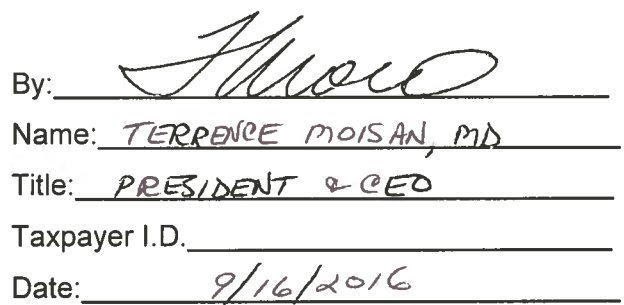 By:
Name: TERRENCE MOISAN, MD
Title: PRESIDENT & CEO
Taxpayer I.D.
Date: 9/16/2016